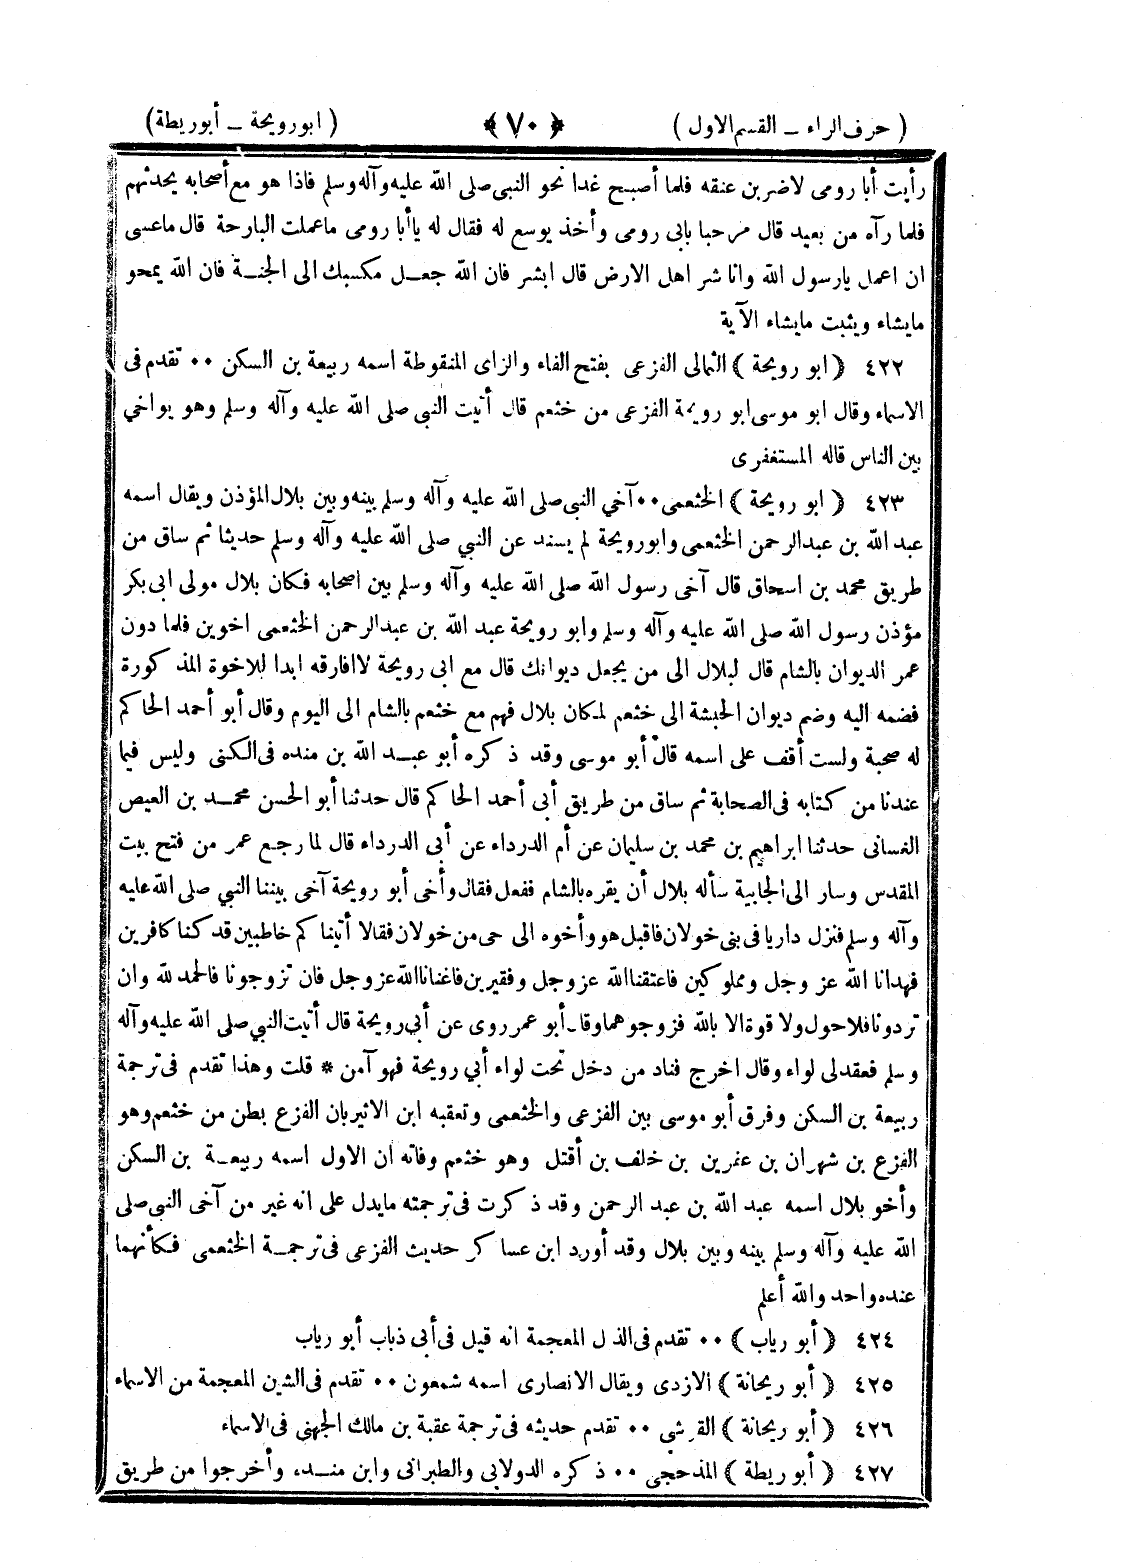 ( حرف الراء ــ القسم الاول ) ﴿ ٧٠ ﴾ ( ابو رويحة ــ أبو ريطة )
رأيت أبا رومى لاضربن عنقه فلما أصبح غدا نحو النبي صلى الله عليه وآله وسلم فاذا هو مع أصحابه يحدثهم
فلما رآه من بعيد قال مرحبا بابى رومى وأخذ يوسع له فقال له ياأبا رومى ماعملت البارحة قال ماعسى
ان اعمل يارسول الله وانا شر اهل الارض قال ابشر فان الله جعل مكسبك الى الجنة فان الله يمحو
مايشاء ويثبت مايشاء الآية
٤٢٢ ( ابو رويحة ) الثمالى الفزعى بفتح الفاء والزاى المنقوطة اسمه ربيعة بن السكن ٠٠ تقدم فى
الاسماء وقال ابو موسى ابو رويحة الفزعى من خثعم قال أتيت النبي صلى الله عليه وآله وسلم وهو يواخي
بين الناس قاله المستغفرى
٤٢٣ ( ابو رويحة ) الخثعمى ٠٠ آخي النبي صلى الله عليه وآله وسلم بينه وبين بلال المؤذن ويقال اسمه
عبد الله بن عبدالرحمن الخثعمى وابورويحة لم يسند عن النبي صلى الله عليه وآله وسلم حديثا ثم ساق من
طريق محمد بن اسحاق قال آخى رسول الله صلى الله عليه وآله وسلم بين اصحابه فكان بلال مولى ابى بكر
مؤذن رسول الله صلى الله عليه وآله وسلم وابو رويحة عبد الله بن عبدالرحمن الخثعمى اخوين فلما دون
عمر الديوان بالشام قال لبلال الى من يجعل ديوانك قال مع ابى رويحة لاافارقه ابدا للاخوة المذكورة
فضمه اليه وضم ديوان الحبشة الى خثعم لمكان بلال فهم مع خثعم بالشام الى اليوم وقال أبو أحمد الحاكم
له صحبة ولست أقف على اسمه قال أبو موسى وقد ذكره أبو عبد الله بن منده فى الكنى وليس فيما
عندنا من كتابه فى الصحابة ثم ساق من طريق أبى أحمد الحاكم قال حدثنا أبو الحسن محمد بن العيص
الغسانى حدثنا ابراهيم بن محمد بن سليمان عن أم الدرداء عن أبى الدرداء قال لما رجع عمر من فتح بيت
المقدس وسار الى الجابية سأله بلال أن يقره بالشام ففعل فقال وأخى أبو رويحة آخى بيننا النبي صلى الله عليه
وآله وسلم فنزل داريا فى بنى خولان فاقبل هو وأخوه الى حى من خولان فقالا أتيناكم خاطبين قد كنا كافرين
فهدانا الله عز وجل ومملوكين فاعتقنا الله عز وجل وفقيرين فاغنانا الله عز وجل فان تزوجونا فالحمد لله وان
تردونا فلا حول ولا قوة الا بالله فزوجوهما وقال أبو عمر روى عن أبي رويحة قال أتيت النبي صلى الله عليه وآله
وسلم فعقد لى لواء وقال اخرج فناد من دخل تحت لواء أبي رويحة فهو آمن * قلت وهذا تقدم فى ترجمة
ربيعة بن السكن وفرق أبو موسى بين الفزعى والخثعمى وتعقبه ابن الاثير بان الفزع بطن من خثعم وهو
الفزع بن شهران بن عفرين بن خلف بن أقتل وهو خثعم وفاته ان الاول اسمه ربيعة بن السكن
وأخو بلال اسمه عبد الله بن عبد الرحمن وقد ذكرت فى ترجمته مايدل على انه غير من آخى النبي صلى
الله عليه وآله وسلم بينه وبين بلال وقد أورد ابن عساكر حديث الفزعى فى ترجمة الخثعمى فكأنهما
عنده واحد والله أعلم
٤٢٤ ( أبو رياب ) ٠٠ تقدم فى الذال المعجمة انه قيل فى أبى ذباب أبو رياب
٤٢٥ ( أبو ريحانة ) الازدى ويقال الانصارى اسمه شمعون ٠٠ تقدم فى الشين المعجمة من الاسماء
٤٢٦ ( أبو ريحانة ) القرشى ٠٠ تقدم حديثه فى ترجمة عقبة بن مالك الجهنى فى الاسماء
٤٢٧ ( أبو ريطة ) المذحجى ٠٠ ذكره الدولابي والطبرانى وابن منده وأخرجوا من طريق